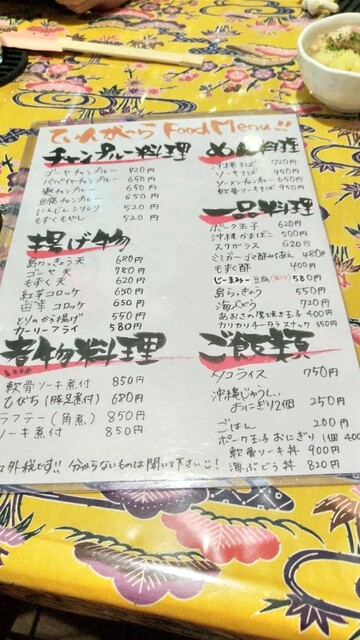 てぃんがーら Food Menu!!
チャンプルー料理
ゴーヤチャンプルー 920円
パパイヤチャンプルー 650
麩チャンプルー 650円
豆腐チャンプルー 650円
にんじんシリシリ 520円
もずくもやし 520円
揚げ物
島らっきょう天 680円
ゴーヤ天 780円
もずく天 620円
紅芋コロッケ 650円
田芋コロッケ 650円
とりのから揚げ 550円
カーリーフライ 580円
煮物料理
軟骨ソーキ煮付 850円
てびち(豚足煮付) 680円
ラフテー(角煮) 850円
ソーキ煮付 850円
めん料理
沖縄そば 720円
ソーキそば 950円
ソーメンチャンプルー 650円
軟骨ソーキそば 950円
一品料理
ポーク玉子 620円
沖縄かまぼこ 500円
スクガラス 620円
ミミガーゴマ酢みそあえ 480円
もずく酢 400円
じーまみー豆腐 580円
島らっきょう 550円
海ぶどう 720円
あおさの厚焼き玉子 400円
カリカリチーズスナック 350円
ご飯類
タコライス 750円
沖縄じゅうしぃ
おにぎり2個 250円
ごはん 200円
ポーク玉子おにぎり 1個 400
軟骨ソーキ丼 900円
海ぶどう丼 820円
外税です!! 分からないものは聞いて下さいネ!